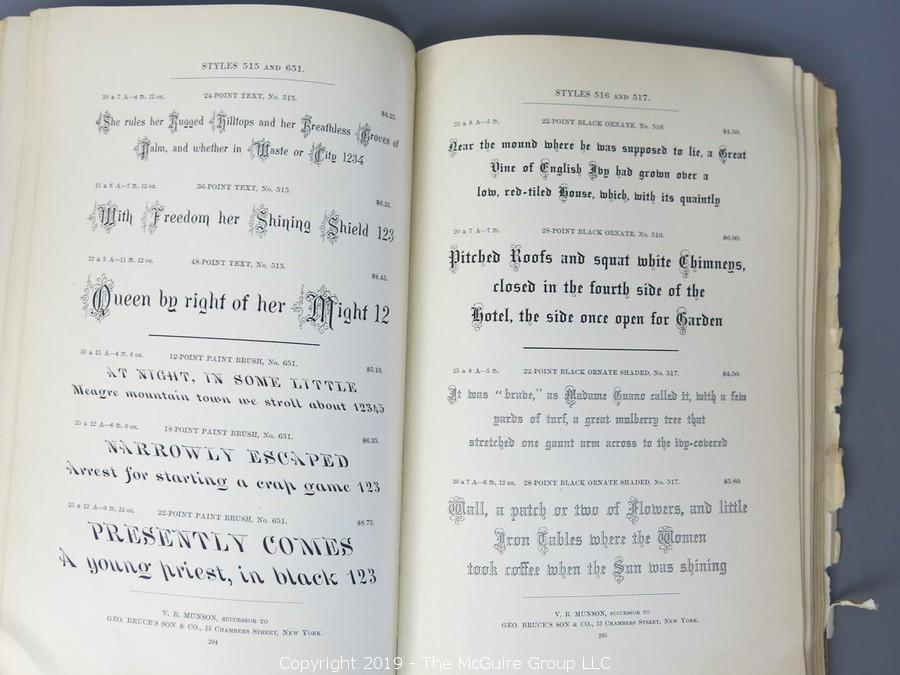 STYLES 515 AND 651.
20 a 7 A—4 lb. 12 oz. 24-POINT TEXT, No. 515. $4.25.
She rules her Rugged Hilltops and her Breathless Groves of
Palm, and whether in Waste or City 1234
15 a 6 A—7 lb. 12 oz. 36-POINT TEXT, No. 515. $6.25.
With Freedom her Shining Shield 123
12 a 5 A—11 lb. 12 oz. 48-POINT TEXT, No. 515. $8.45.
Queen by right of her Might 12
30 a 15 A—4 lb. 6 oz. 12-POINT PAINT BRUSH, No. 651. $5.10.
AT NIGHT, IN SOME LITTLE
Meagre mountain town we stroll about 12345
25 a 12 A—6 lb. 6 oz. 18-POINT PAINT BRUSH, No. 651. $6.35.
NARROWLY ESCAPED
Arrest for starting a crap game 123
25 a 12 A—9 lb. 12 oz. 22-POINT PAINT BRUSH, No. 651. $8.75.
PRESENTLY COMES
A young priest, in black 123
V. B. MUNSON, SUCCESSOR TO
GEO. BRUCE'S SON & CO., 13 CHAMBERS STREET, NEW YORK.
294
STYLES 516 AND 517.
25 a 8 A—5 lb. 22-POINT BLACK ORNATE, No. 516. $4.50.
Near the mound where he was supposed to lie, a Great
Vine of English Ivy had grown over a
low, red-tiled House, which, with its quaintly
20 a 7 A—7 lb. 28-POINT BLACK ORNATE, No. 516. $6.00.
Pitched Roofs and squat white Chimneys,
closed in the fourth side of the
Hotel, the side once open for Garden
25 a 8 A—5 lb. 22-POINT BLACK ORNATE SHADED, No. 517. $4.50.
It was "brave," as Madame Guano called it, with a few
yards of turf, a great mulberry tree that
stretched one gaunt arm across to the ivy-covered
20 a 7 A—6 lb. 12 oz. 28-POINT BLACK ORNATE SHADED, No. 517. $5.80.
Wall, a patch or two of Flowers, and little
Iron Tables where the Women
took coffee when the Sun was shining
V. B. MUNSON, SUCCESSOR TO
GEO. BRUCE'S SON & CO., 13 CHAMBERS STREET, NEW YORK.
295
Copyright 2019 - The McGuire Group LLC